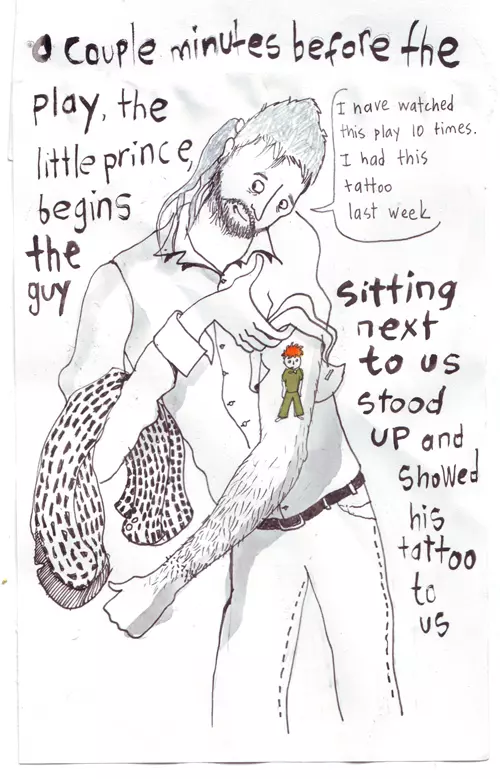 a couple minutes before the
play, the
little prince,
begins
the
guy
I have watched
this play 10 times.
I had this
tattoo
last week
sitting
next
to us
stood
UP and
showed
his
tattoo
to
us